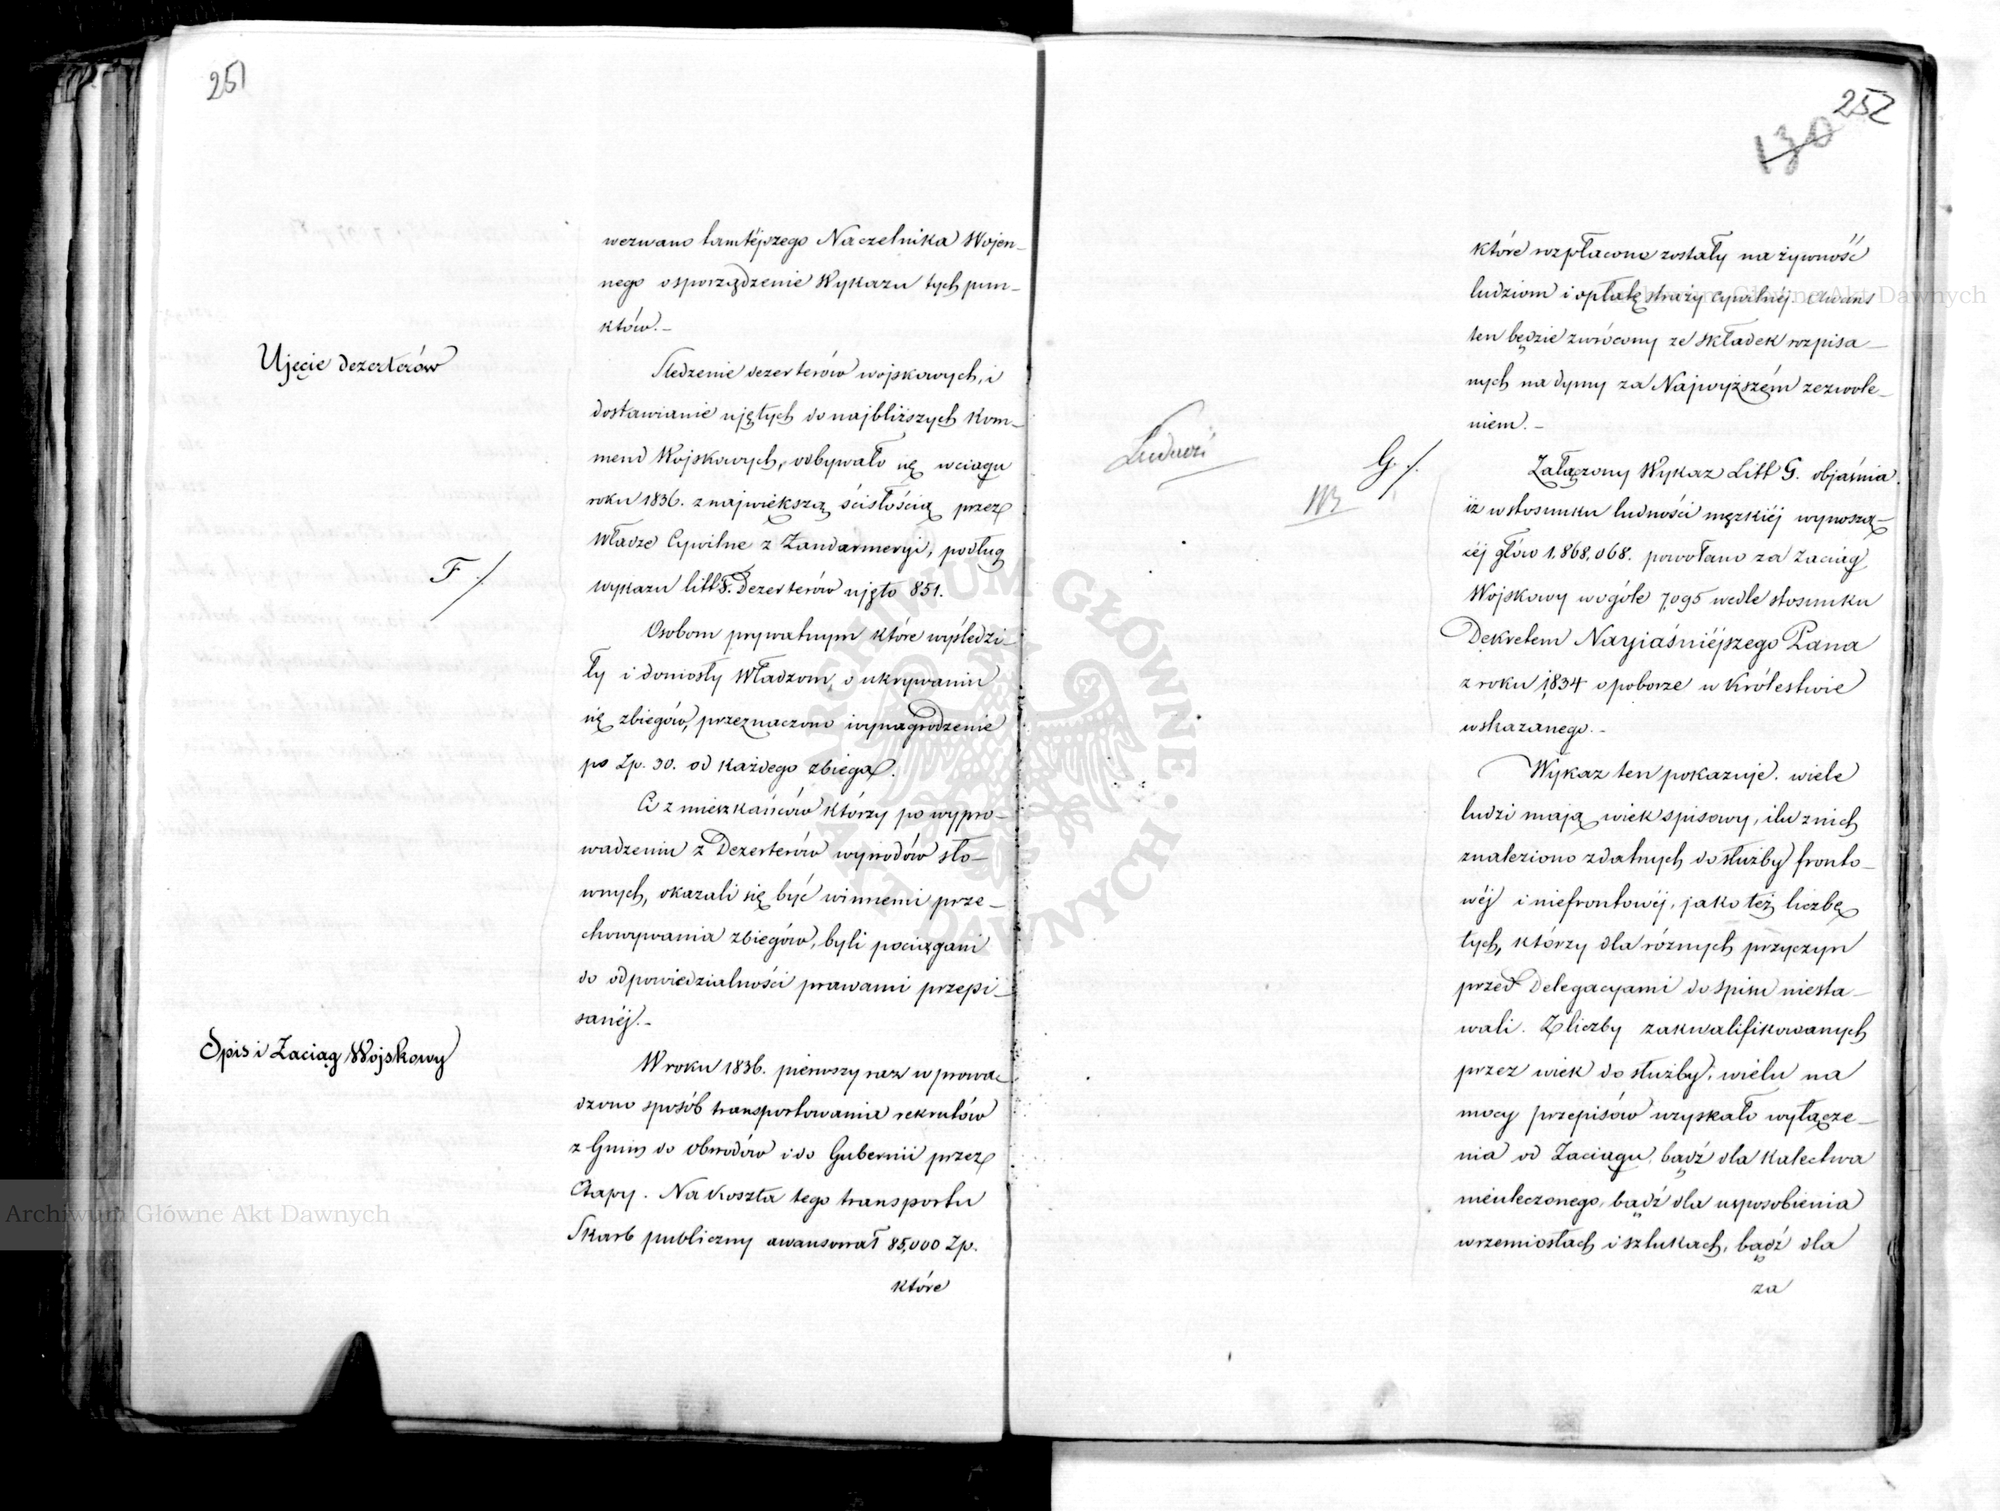 251
wezwano tamtéjszego Naczelnika Wojen-
nego o sporządzenie Wykazu tych pun-
któw.-
Ujęcie dezerterów
Śledzenie dezerterów wojskowych, i
dostawianie ujętych do najbliższych Kom-
mend Wojskowych, odbywało się w ciągu
roku 1836. z największą ścisłością przez
Władze Cywilne z Żandarmeryi, podług
F./
wykazu litt F. Dezerterów ujęto 851.
Osobom prywatnym które wyśledzi-
ły i doniosły Władzom, o ukrywaniu
się zbiegów, przeznaczono wynagrodzenie
po Zp. 30. od każdego zbiega.
Ci z mieszkańców którzy po wypro-
wadzeniu z Dezerterów wywodów sło-
wnych, okazali się być winnemi prze-
chowywania zbiegów, byli pociągani
do odpowiedzialności prawami przepi-
sanéj.-
Spis i Zaciąg Wojskowy
W roku 1836. pierwszy raz wprowa-
dzono sposób transportowania rekrutów
z Gmin do Obwodów i do Gubernii przez
Etapy. Na koszta tego transportu
Skarb publiczny awansował 85,000 Zp.
które
252
130
które rozpłacone zostały na żywność
ludziom i opłatę straży cywilnéj. Awans
ten będzie zwrócony ze składek rozpisa-
nych na dymy za Najwyższém zezwole-
niem.-
G./.
Załączony Wykaz Litt G. objaśnia.
iż w stosunku ludności męzkiéj wynoszą-
céj głów 1,868,068. powołano za Zaciąg
Wojskowy wogóle 7,095 wedle stosunku
Dekretem Nayjaśniéjszego Pana
z roku 1834 o poborze w Królestwie
wskazanego.-
Wykaz ten pokazuje. wiele
ludzi mają wiek spisowy, ilu z nich
znaleziono zdatnych do służby fronto-
wéj i niefrontowéj, jako też liczbę
tych, którzy dla różnych przyczyn
przed Delegacyami do spisu niesta-
wali. Z liczby zakwalifikowanych
przez wiek do służby, wielu na
mocy przepisów uzyskało wyłącze-
nia od Zaciągu, bądź dla kalectwa
nieuleczonego, bądź dla usposobienia
w rzemiosłach i sztukach, bądź dla
za
Archiwum Główne Akt Dawnych
Archiwum Główne Akt Dawnych
ARCHIWUM GŁÓWNE AKT DAWNYCH